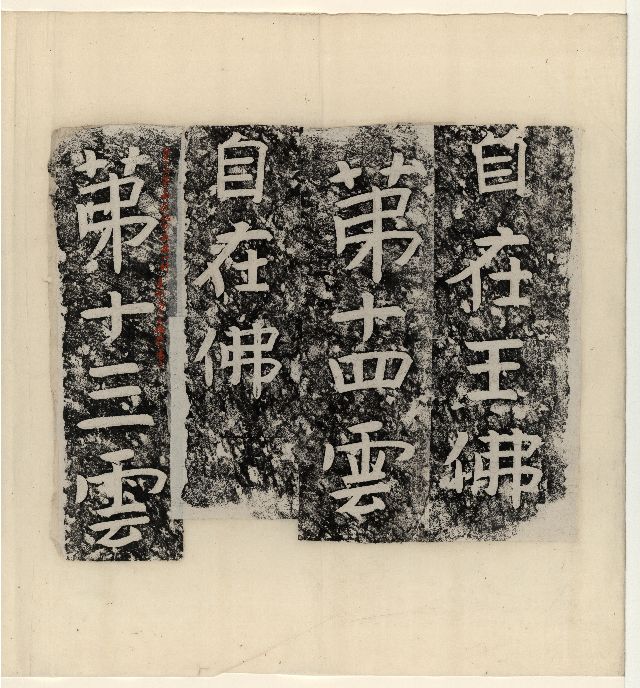 自在王佛
苐十四雲
自在佛
苐十三雲